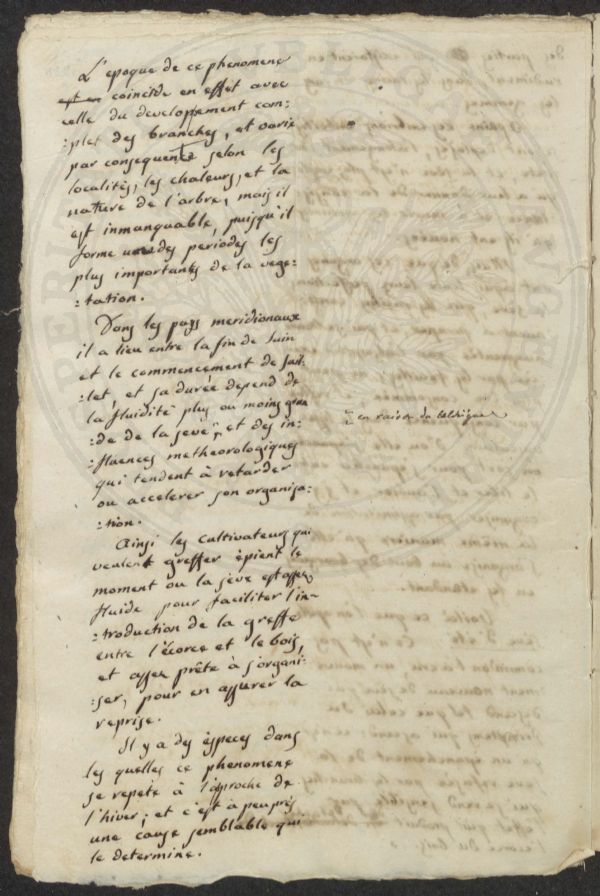 L'epoque de ce phenomene
est en coincide en effet avec
celle du developement com:
:plet des branches, et varie
par consequent selon les
localités, les chaleurs, et la
nature de l'arbre, mais il
est inmanquable, puisqu'il
forme une des periodes les
plus importantes de la vege:
:tation.
Dans les pays meridionaux
il a lieu entre la fin de Juin
et le commencement de Juil:
:let, et sa durée depend de
la fluidité plus ou moins gran
:de de la seve, et des in:
:fluences metheorologiques
qui tendent à retarder
ou accelerer son organisa:
:tion.
Ainsi les cultivateurs qui
veulent greffer épient le
moment ou la sève est assez
fluide pour faciliter l'in-
:troduction de la greffe
entre l'écorce et le bois,
et assez prête à s'organi:
:ser, pour en assurer la
reprise.
Il y a des èspeces dans
les quelles ce phenomene
se repete à l'approche de
l'hiver; et c'est à peu près
une cause semblable qui
le determine.
en raison du